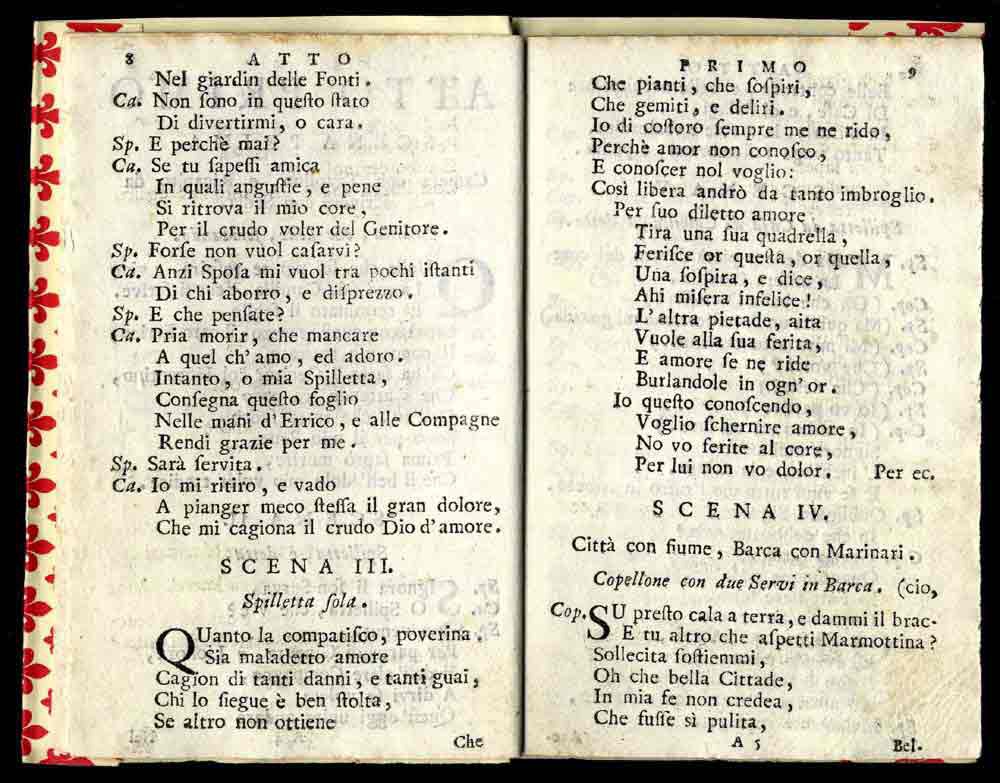 8 ATTO
Nel giardin delle Fonti.
Ca. Non ſono in queſto ſtato
Di divertirmi, o cara.
Sp. E perchè mai?
Ca. Se tu ſapeſſi amica
In quali anguſtie, e pene
Si ritrova il mio core,
Per il crudo voler del Genitore.
Sp. Forſe non vuol caſarvi?
Ca. Anzi Spoſa mi vuol tra pochi iſtanti
Di chi aborro, e diſprezzo.
Sp. E che penſate?
Ca. Pria morir, che mancare
A quel ch'amo, ed adoro.
Intanto, o mia Spilletta,
Conſegna queſto foglio
Nelle mani d'Errico, e alle Compagne
Rendi grazie per me.
Sp. Sarà ſervita.
Ca. Io mi ritiro, e vado
A pianger meco ſteſſa il gran dolore,
Che mi cagiona il crudo Dio d'amore.
SCENA III.
Spilletta ſola.
QUanto la compatiſco, poverina.
Sia maladetto amore
Cagion di tanti danni, e tanti guai,
Chi lo ſiegue è ben ſtolta,
Se altro non ottiene
Che
PRIMO 9
Che pianti, che ſoſpiri,
Che gemiti, e deliri.
Io di coſtoro ſempre me ne rido,
Perchè amor non conoſco,
E conoſcer nol voglio:
Così libera andrò da tanto imbroglio.
Per ſuo diletto amore
Tira una ſua quadrella,
Feriſce or queſta, or quella,
Una ſoſpira, e dice,
Ahi miſera infelice!
L'altra pietade, aita
Vuole alla ſua ferita,
E amore ſe ne ride
Burlandole in ogn'or.
Io queſto conoſcendo,
Voglio ſchernire amore,
No vo ferite al core,
Per lui non vo dolor. Per ec.
SCENA IV.
Città con fiume, Barca con Marinari.
Copellone con due Servi in Barca. (cio,
Cop. SU preſto cala a terra, e dammi il brac-
E tu altro che aſpetti Marmottina?
Sollecita ſoſtiemmi,
Oh che bella Cittade,
In mia fe non credea,
Che fuſſe sì pulita,
A 5 Bel.